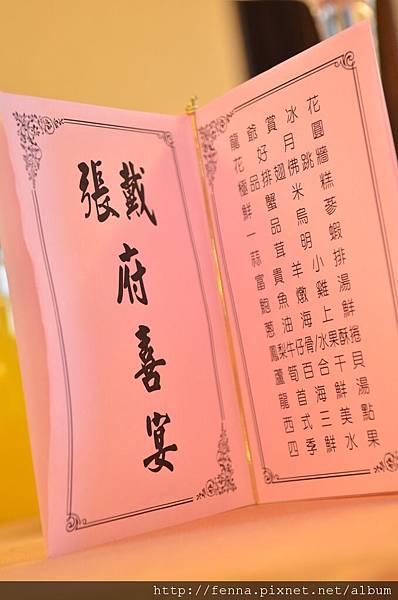 戴張府喜宴
龍爺賞冰花
花好月圓
極品排翅佛跳牆
鮮蟹米糕
一品烏蔘
蒜茸明蝦
富貴羊小排
鮑魚燉雞湯
蔥油海上鮮
鳳梨牛仔骨/水果酥捲
蘆筍百合干貝
龍首海鮮湯
西式三美點
四季鮮水果
http://fenna.pixnet.net/album